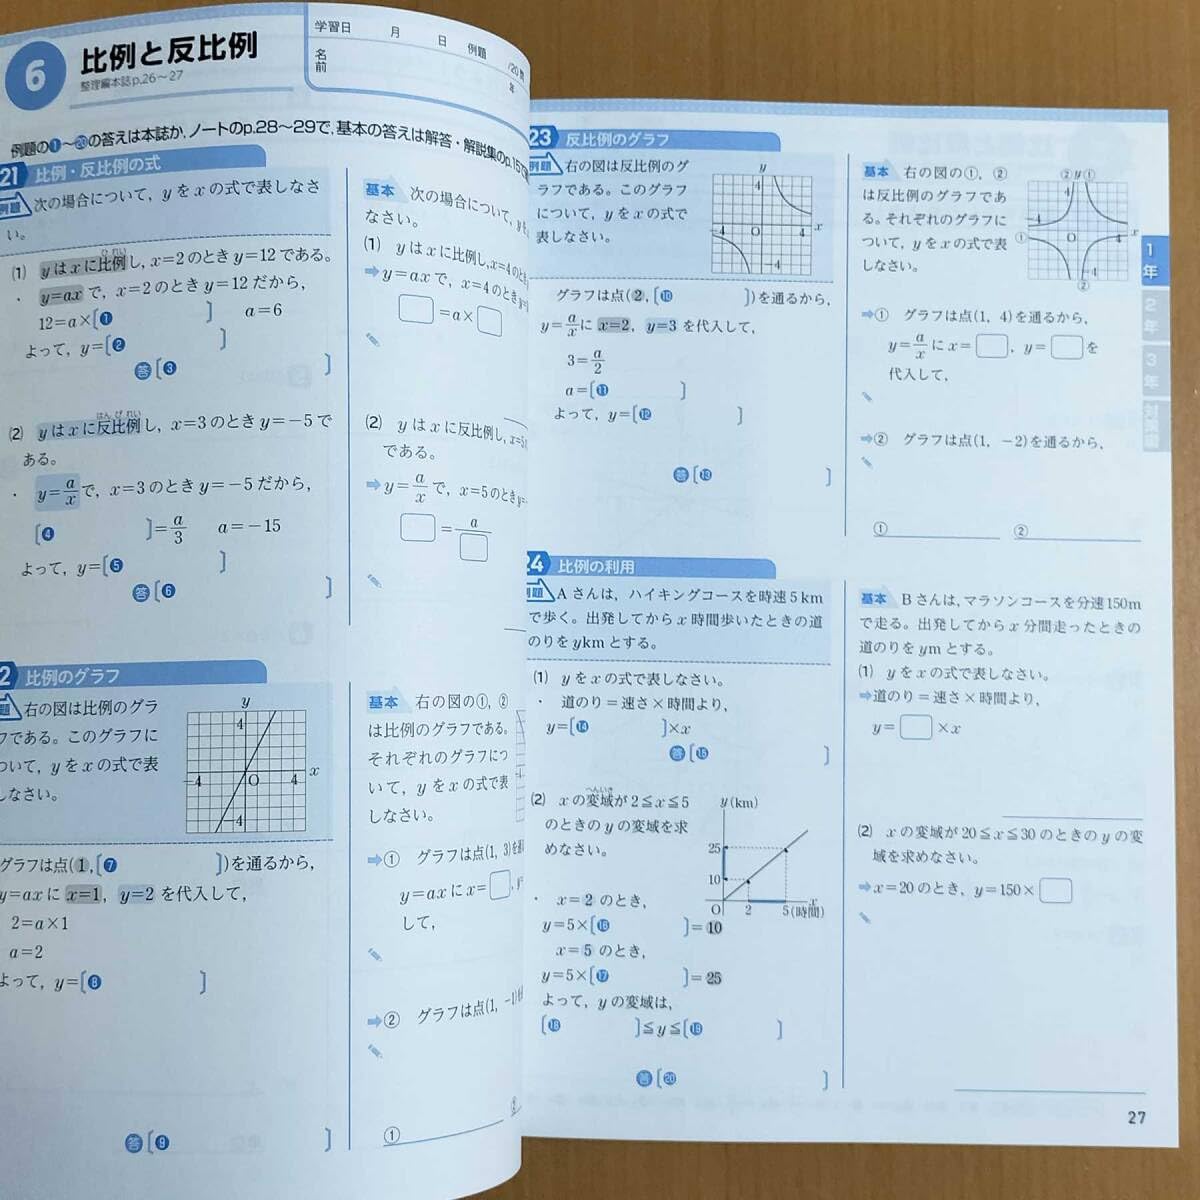 6
比例と反比例
整理編本誌p.26〜27
学習日　月　日
例題　/20問
名前
例題の❶〜⓴の答えは本誌か,ノートのp.28〜29で,基本の答えは解答・解説集のp.15で
21 比例・反比例の式
例題 次の場合について, yをxの式で表しなさ
い。
(1) yはxに比例し, x=2のときy=12である。
ひれい
・ y=axで, x=2のときy=12だから,
12=a×[❶ ] a=6
よって, y=[❷ ]
答[❸ ]
(2) yはxに反比例し, x=3のときy=-5で
はんぴれい
ある。
・ y=a/xで, x=3のときy=-5だから,
[❹ ]=a/3 a=-15
よって, y=[❺ ]
答[❻ ]
基本 次の場合について, yを
なさい。
(1) yはxに比例し, x=4のとき
➡y=axで, x=4のときy=
□=a×□
(2) yはxに反比例し, x=5
である。
➡y=a/xで, x=5のときy=
□=a/□
2 比例のグラフ
題 右の図は比例のグラ
フである。このグラフに
ついて, yをxの式で表
しなさい。
y
4
-4 O 4 x
-4
グラフは点(1,[❼ ])を通るから,
y=axにx=1, y=2を代入して,
2=a×1
a=2
よって, y=[❽ ]
答[❾ ]
基本 右の図の①, ②
は比例のグラフである。
それぞれのグラフにつ
いて, yをxの式で表
しなさい。
➡① グラフは点(1, 3)を通
y=axにx=□,
して,
➡② グラフは点(1, -1)
①
②
23 反比例のグラフ
例題 右の図は反比例のグ
ラフである。このグラフ
について, yをxの式で
表しなさい。
y
4
-4 O 4 x
-4
グラフは点(2,[❿ ])を通るから,
y=a/xにx=2, y=3を代入して,
3=a/2
a=[⓫ ]
よって, y=[⓬ ]
答[⓭ ]
基本 右の図の①, ②
は反比例のグラフであ
る。それぞれのグラフに
ついて, yをxの式で表
しなさい。
② y ①
4
-4 O 4 x
①
-4
②
➡① グラフは点(1, 4)を通るから,
y=a/xにx=□, y=□を
代入して,
➡② グラフは点(1, -2)を通るから,
① ②
24 比例の利用
例題 Aさんは, ハイキングコースを時速5km
で歩く。出発してからx時間歩いたときの道
のりをykmとする。
(1) yをxの式で表しなさい。
・ 道のり=速さ×時間より,
y=[⓮ ]×x
答[⓯ ]
(2) xの変域が2≦x≦5
へんいき
のときのyの変域を求
めなさい。
・ x=2のとき,
y=5×[⓰ ]=10
x=5のとき,
y=5×[⓱ ]=25
よって, yの変域は,
[⓲ ]≦y≦[⓳ ]
答[⓴ ]
y(km)
25
10
O 2 5 x
(時間)
基本 Bさんは,マラソンコースを分速150m
で走る。出発してからx分間走ったときの
道のりをymとする。
(1) yをxの式で表しなさい。
➡道のり=速さ×時間より,
y=□×x
(2) xの変域が20≦x≦30のときのyの変
域を求めなさい。
➡x=20のとき, y=150×□
1年
2年
3年
27